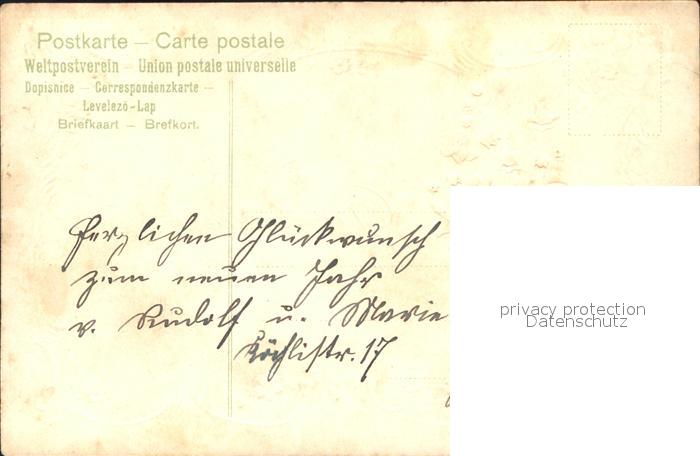 Postkarte — Carte postale
Weltpostverein — Union postale universelle
Dopisnice — Correspondenzkarte —
Levelező-Lap
Briefkaart — Brefkort.
Herzlichen Glückwunsch
zum neuen Jahr
v. Rudolf u. Marie
Köchlistr. 17
privacy protection
Datenschutz